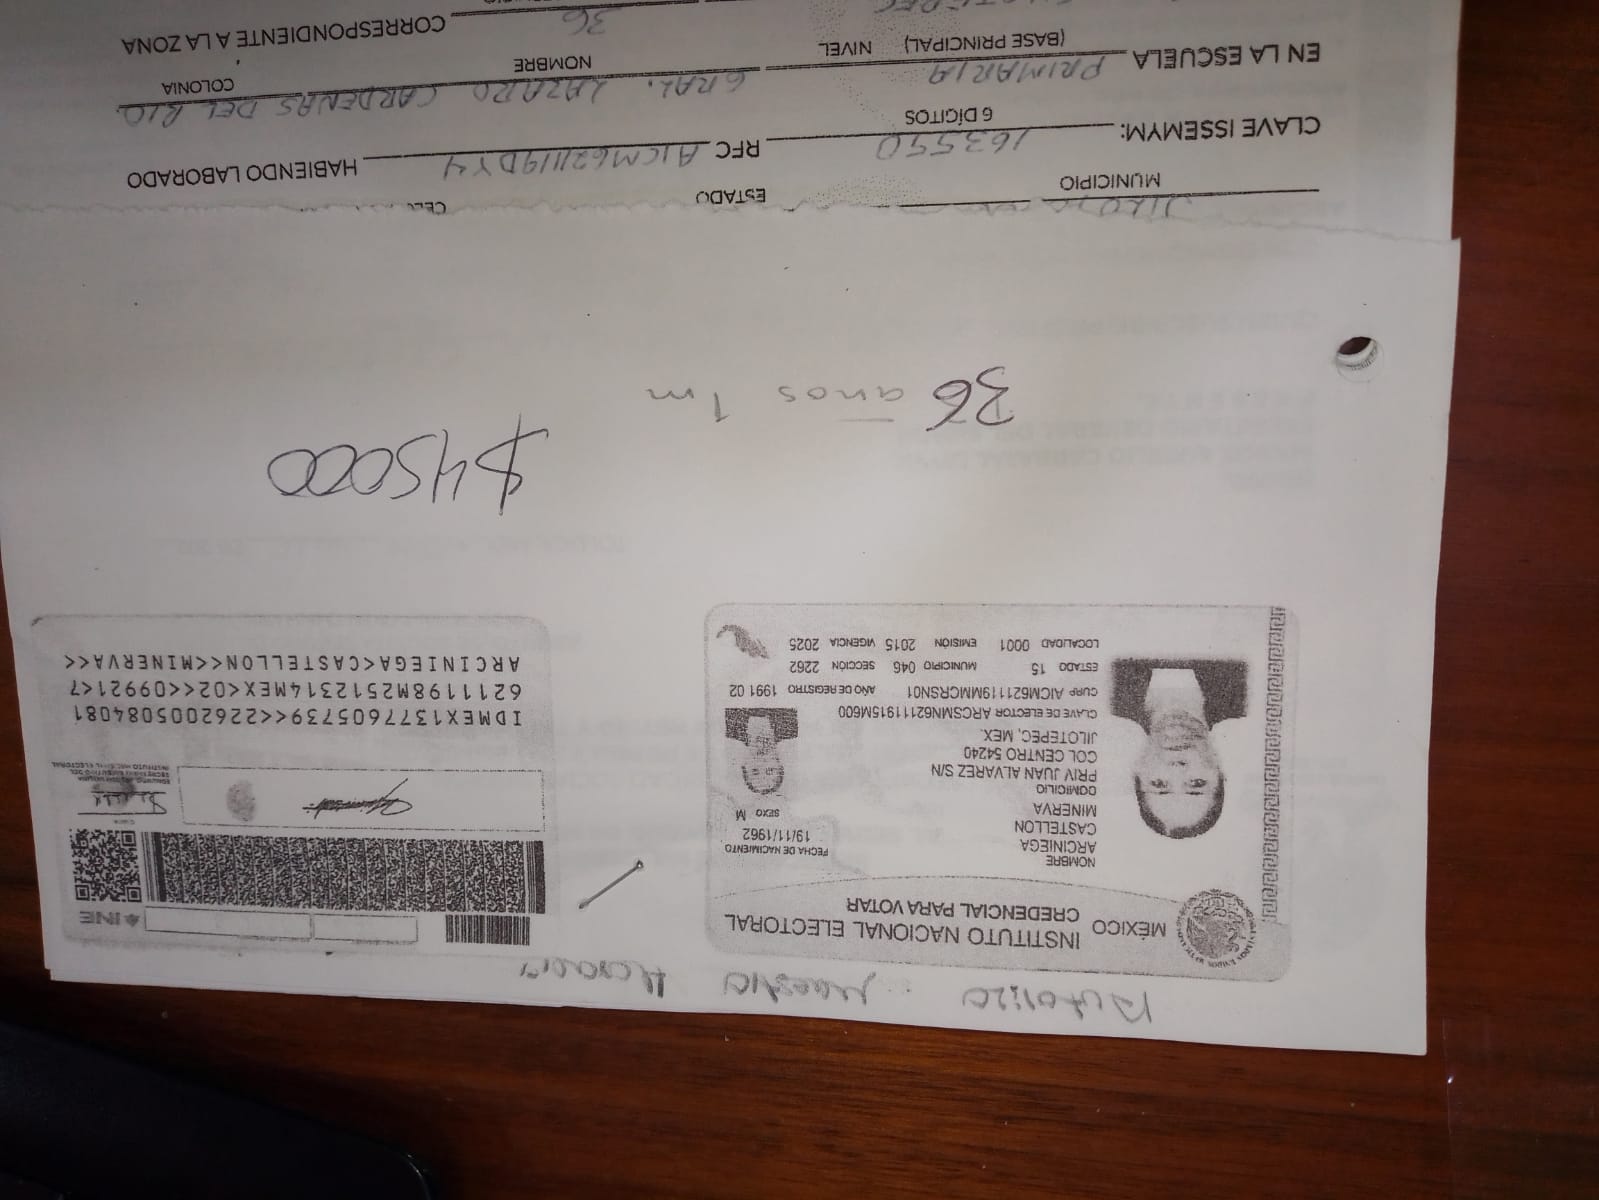 Autorizo Maestro
MÉXICO INSTITUTO NACIONAL ELECTORAL
CREDENCIAL PARA VOTAR
NOMBRE
ARCINIEGA
CASTELLON
MINERVA
DOMICILIO
PRIV JUAN ALVAREZ S/N
COL CENTRO 54240
JILOTEPEC, MEX.
FECHA DE NACIMIENTO
19/11/1962
SEXO M
CLAVE DE ELECTOR ARCSMN62111915M600
CURP AICM621119MMCRSN01 AÑO DE REGISTRO 1991 02
ESTADO 15 MUNICIPIO 046 SECCIÓN 2262
LOCALIDAD 0001 EMISIÓN 2015 VIGENCIA 2025
INE
IDMEX1377605739<<2262005084081
6211198M2512314MEX<02<<09921<7
ARCINIEGA<CASTELLON<<MINERVA<<
$45000
36 años 1m
MUNICIPIO ESTADO
CLAVE ISSEMYM: 163550 RFC AICM621119DY4 HABIENDO LABORADO
6 DÍGITOS
EN LA ESCUELA PRIMARIA GRAL. LAZARO CARDENAS DEL RIO.
(BASE PRINCIPAL) NIVEL NOMBRE COLONIA
36 CORRESPONDIENTE A LA ZONA